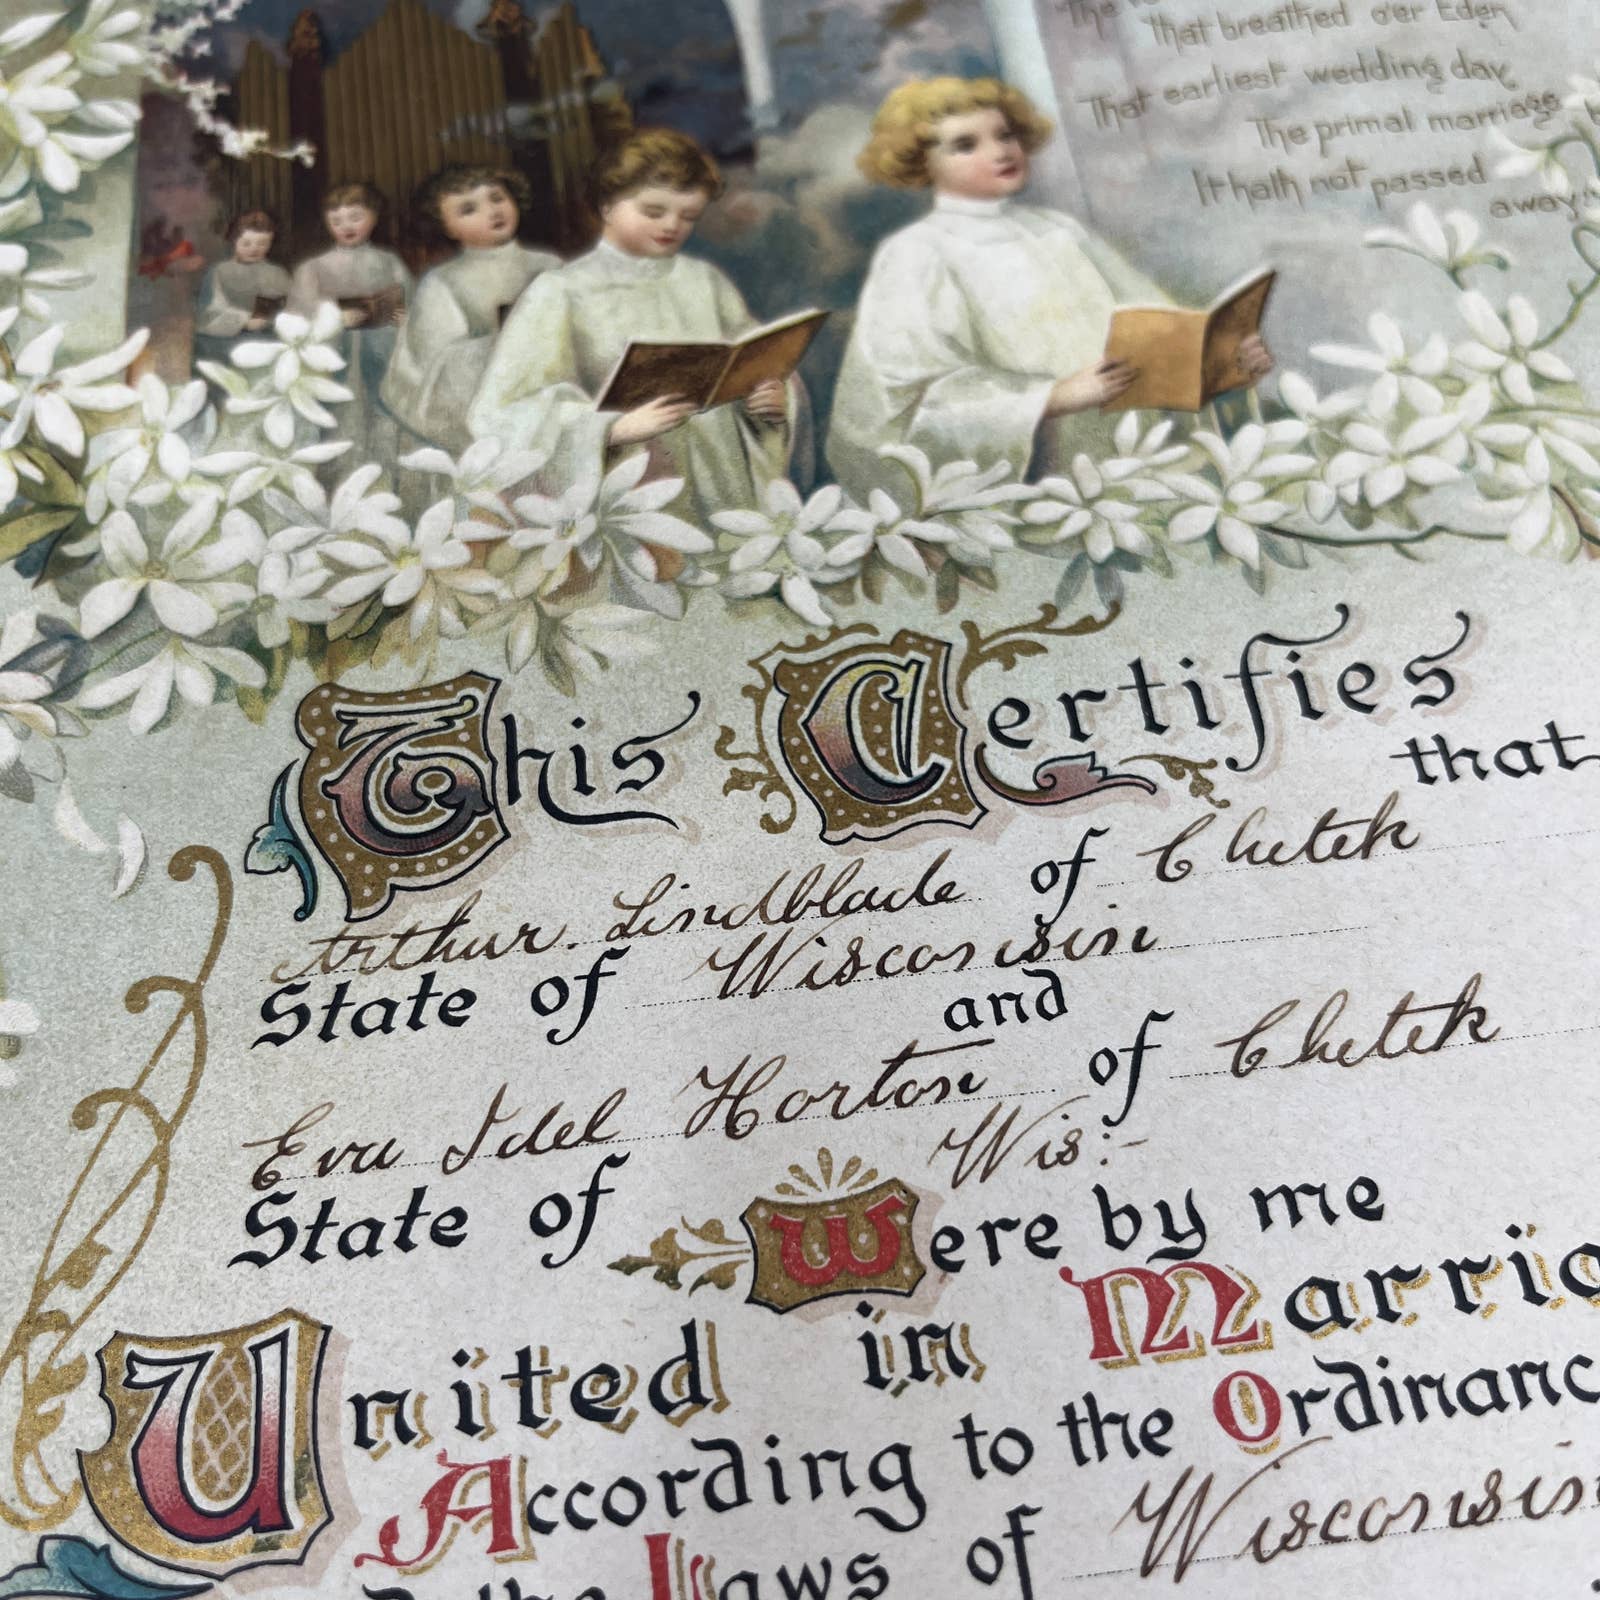 The
that breathed o'er Eden,
That earliest wedding day,
The primal marriage
It hath not passed
away."
This Certifies
that
Arthur. Lindblade of Chetek
State of Wisconsin
and
Eva Idel Horton of Chetek
State of Wis:-
Were by me
United in
According to the
the Laws of Wisconsin